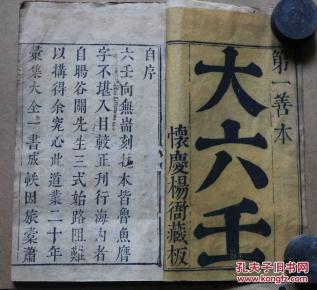 第一善本
大六壬
懷慶楊衙藏板
自序
六壬向無耑刻抄本皆魯魚膺
字不堪入目較正刊行海內者
自賜谷關先生三式始路阻難
以搆得余究心此道業二十年
彙集大全一書成帙因旅橐蕭